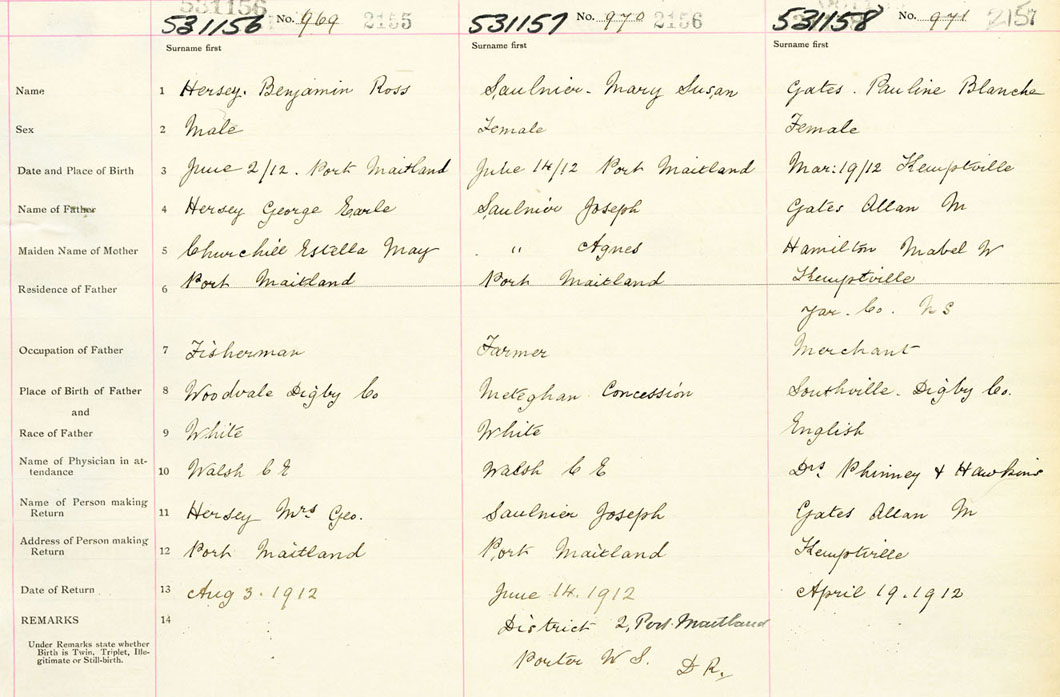 531156
531156 No. 969 2155 531157 No. 970 2156 531158 No. 971 2157
Surname first Surname first Surname first
Name 1 Hersey. Benjamin Ross Saulnier. Mary Susan Gates. Pauline Blanche
Sex 2 Male Female Female
Date and Place of Birth 3 June 2/12. Port Maitland 14/12 Port Maitland Mar: 19/12 Kemptville
Name of Father 4 Hersey George Earle Saulnier Joseph Gates Allan M
Maiden Name of Mother 5 Churchill Estella May " Agnes Hamilton Mabel W
Residence of Father 6 Port Maitland Port Maitland Kemptville
Yar. Co. NS
Occupation of Father 7 Fisherman Farmer Merchant
Place of Birth of Father 8 Woodvale Digby Co Meteghan Concession Southville. Digby Co.
and
Race of Father 9 White White English
Name of Physician in at-
tendance 10 Walsh C E Walsh C E Drs Phinney & Hawkins
Name of Person making
Return 11 Hersey Mrs Geo. Saulnier Joseph Gates Allan M
Address of Person making
Return 12 Port Maitland Port Maitland Kemptville
Date of Return 13 Aug 3. 1912 June 14. 1912 April 19. 1912
REMARKS 14 District 2, Port Maitland
Under Remarks state whether
Birth is Twin, Triplet, Ille-
gitimate or Still-birth.
Porter W S. D R.